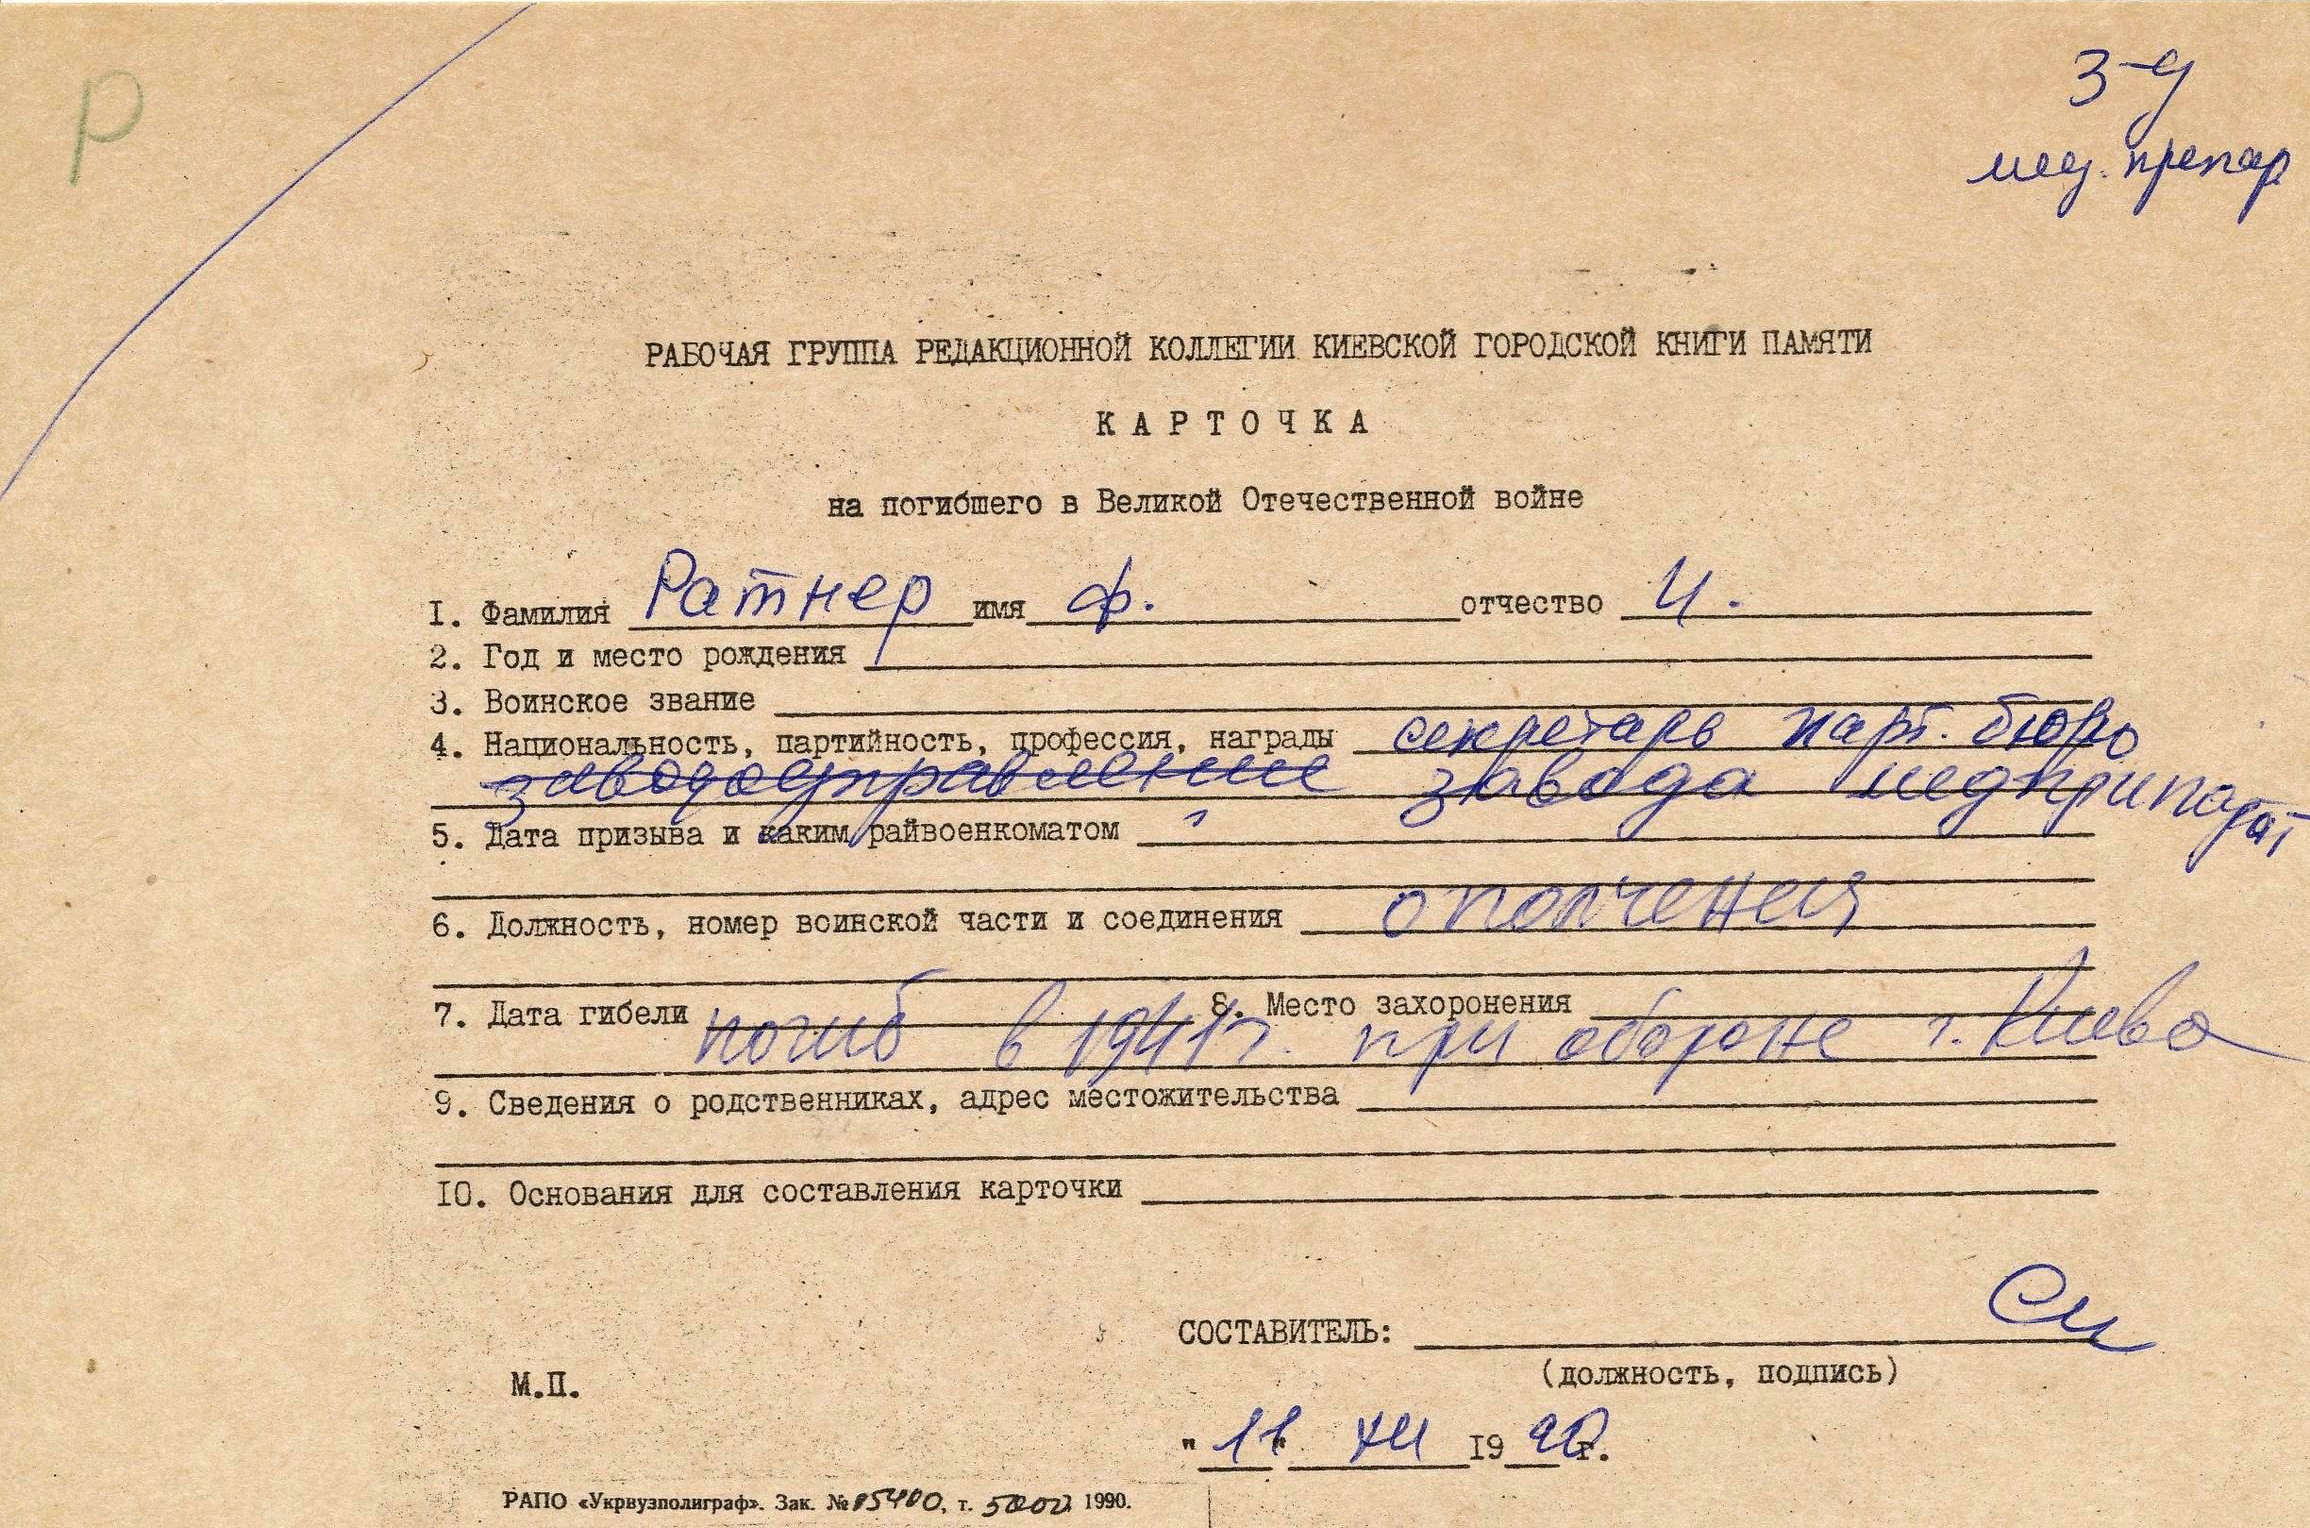 Р
З-д
мед. препар
РАБОЧАЯ ГРУППА РЕДАКЦИОННОЙ КОЛЛЕГИИ КИЕВСКОЙ ГОРОДСКОЙ КНИГИ ПАМЯТИ
КАРТОЧКА
на погибшего в Великой Отечественной войне
1. Фамилия Ратнер имя Ф. отчество И.
2. Год и место рождения
3. Воинское звание
4. Национальность, партийность, профессия, награды секретарь парт. бюро
заводоуправление завода медпрепарат
5. Дата призыва и каким райвоенкоматом
6. Должность, номер воинской части и соединения ополчения
7. Дата гибели погиб в 1941 г. 8. Место захоронения при обороне г. Киева
9. Сведения о родственниках, адрес местожительства
10. Основания для составления карточки
СОСТАВИТЕЛЬ:
(должность, подпись)
М.П.
"11" XII 1990 г.
РАПО «Укрвузполиграф». Зак. № т. 5000 1990.